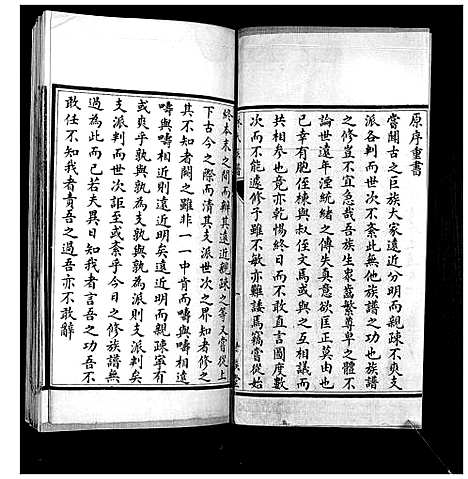 原序重書
嘗聞古之巨族大家遠近分明而親疎不爽支
派各判而世次不紊此無他族譜之功也族譜
之修豈不宜急哉吾族生衆齒繁尊卑之體不
論世遠年湮統緒之傳失真意欲匡正莫由也
已幸有胞侄棟與叔侄文馬或與之互相議而
共相參也竟亦乾惕終日而不敢直言圖度數
次而不能遽修予雖不敏亦難諉焉竊嘗從始
終本末之間而辯其遠近親疎之等又嘗從上
下古今之際而清其支派世次之界知者修之
其不知者闕之雖非一一中肯而疇與疇相遠
疇與疇相近則遠近明矣遠近明而親疎寧有
或爽乎孰與孰為派則支派判矣
支派判而世次詎至或紊乎今日之修族譜無
過為此而已若夫異日知我者言吾之功吾不
敢任不知我者責吾之過吾亦不敢辭